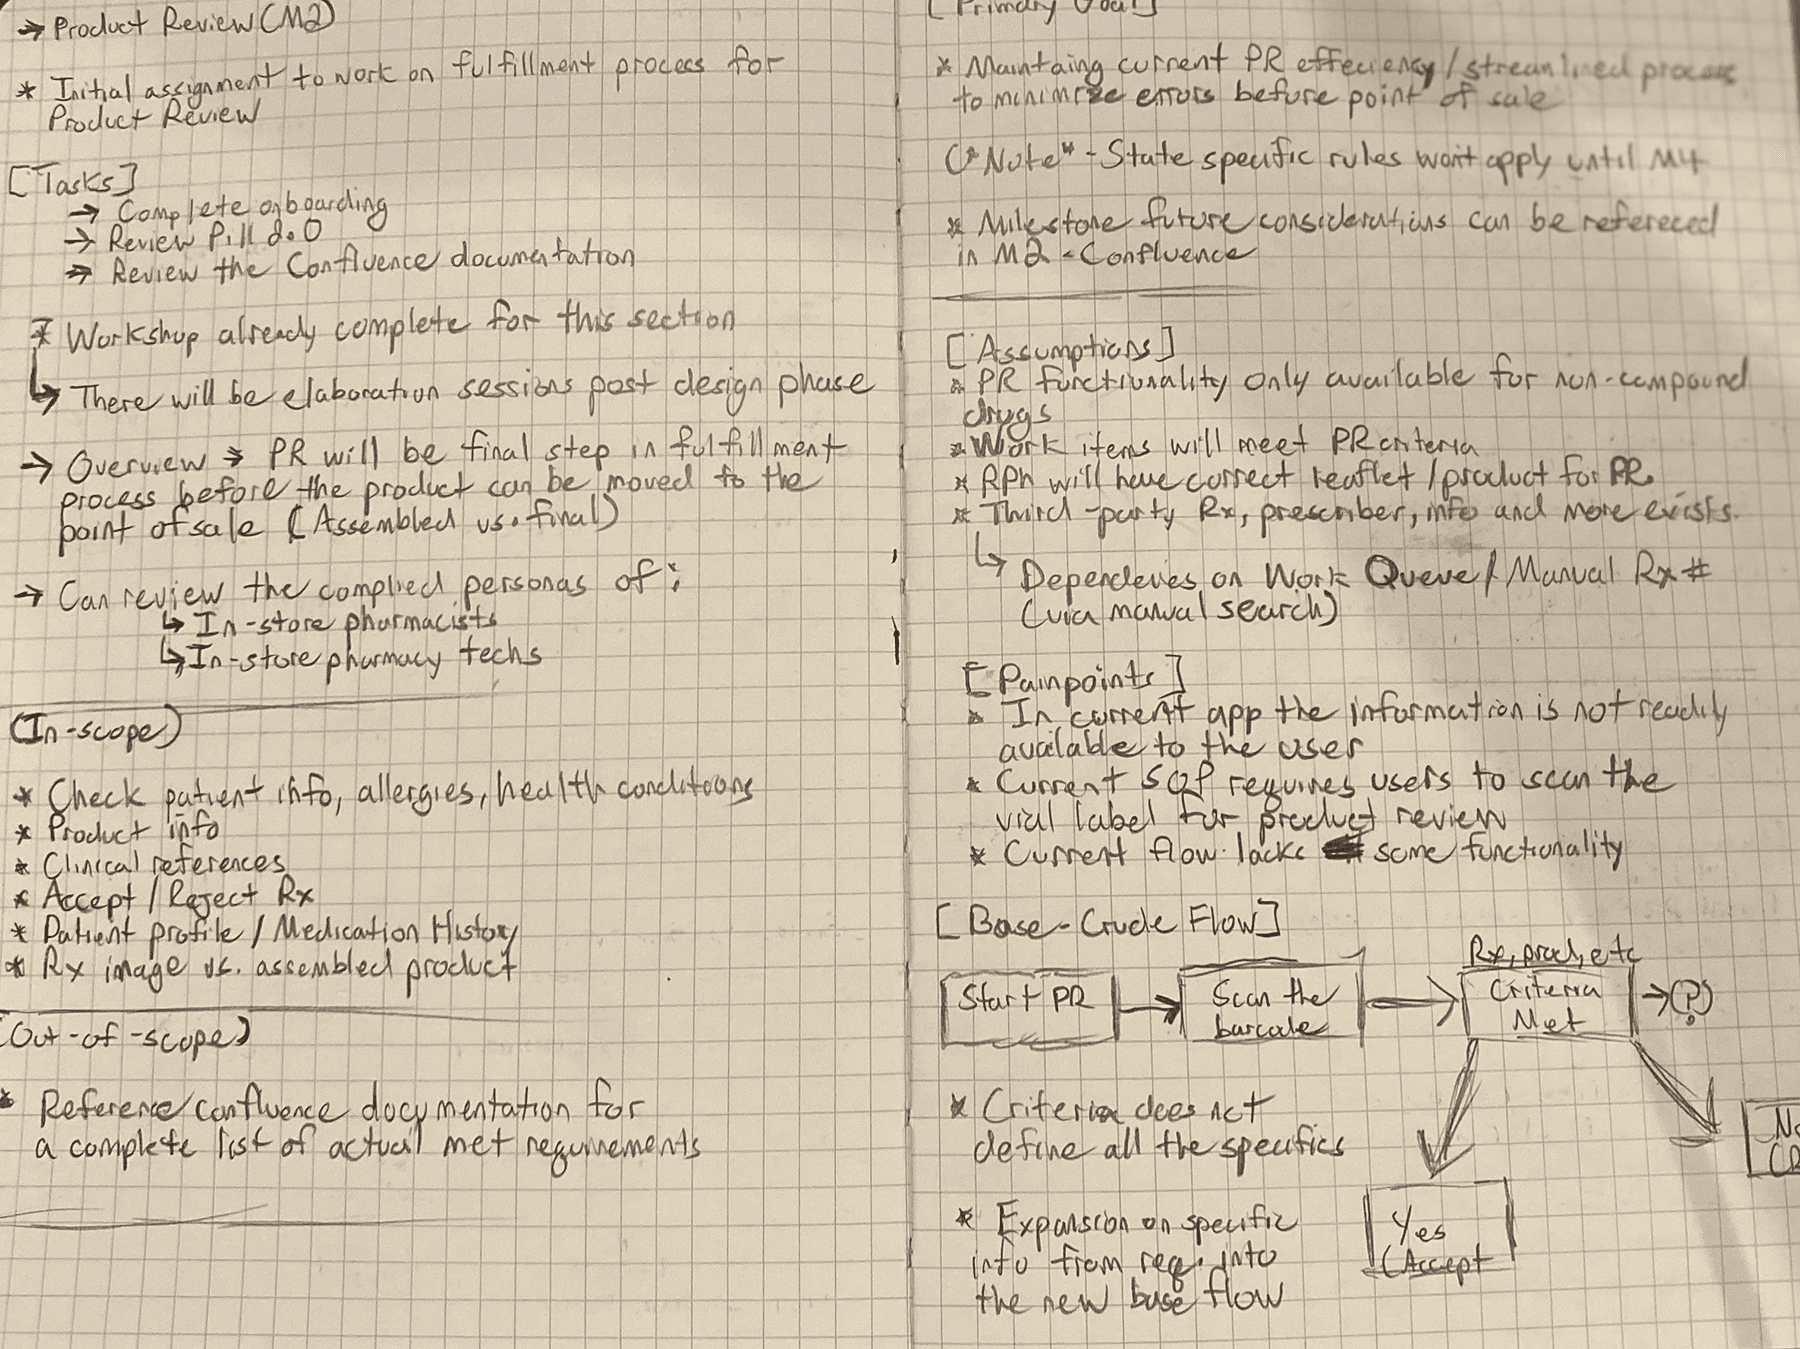 → Product Review (M2)
* Initial assignment to work on fulfillment process for
Product Review
[Tasks]
→ Complete onboarding
→ Review Pill 2.0
→ Review the Confluence documentation
* Workshop already complete for this section
↳ There will be elaboration sessions post design phase
→ Overview → PR will be final step in fulfillment
process before the product can be moved to the
point of sale (Assembled vs. final)
→ Can review the complied personas of:
↳ In-store pharmacists
↳ In-store pharmacy techs
(In-scope)
* Check patient info, allergies, health conditions
* Product info
* Clinical references
* Accept / Reject Rx
* Patient profile / Medication History
* Rx image vs. assembled product
(Out-of-scope)
* Reference confluence documentation for
a complete list of actual met requirements
[Primary Goal]
* Maintaing current PR effeciency / streamlined process
to minimize errors before point of sale
"Note" - State specific rules won't apply until M4
* Milestone future considerations can be refereced
in M2 - Confluence
[Assumptions]
* PR functionality only available for non-compound
drugs
* Work items will meet PR criteria
* RPh will have correct leaflet / product for PR.
* Third-party Rx, prescriber, info and more exists.
↳ on Work Queue / Manual Rx #
(via manual search)
[Painpoints]
* In current app the information is not readily
available to the user
* Current SOP requires users to scan the
vial label for product review
* Current flow lacks some functionality
[Base-Crude Flow]
Rx, prod, etc
Start PR → Scan the → Criteria → (?)
barcode Met
* Criteria does not
define all the specifics
No
Yes
(Accept
* Expansion on specific
info from req. into
the new base flow